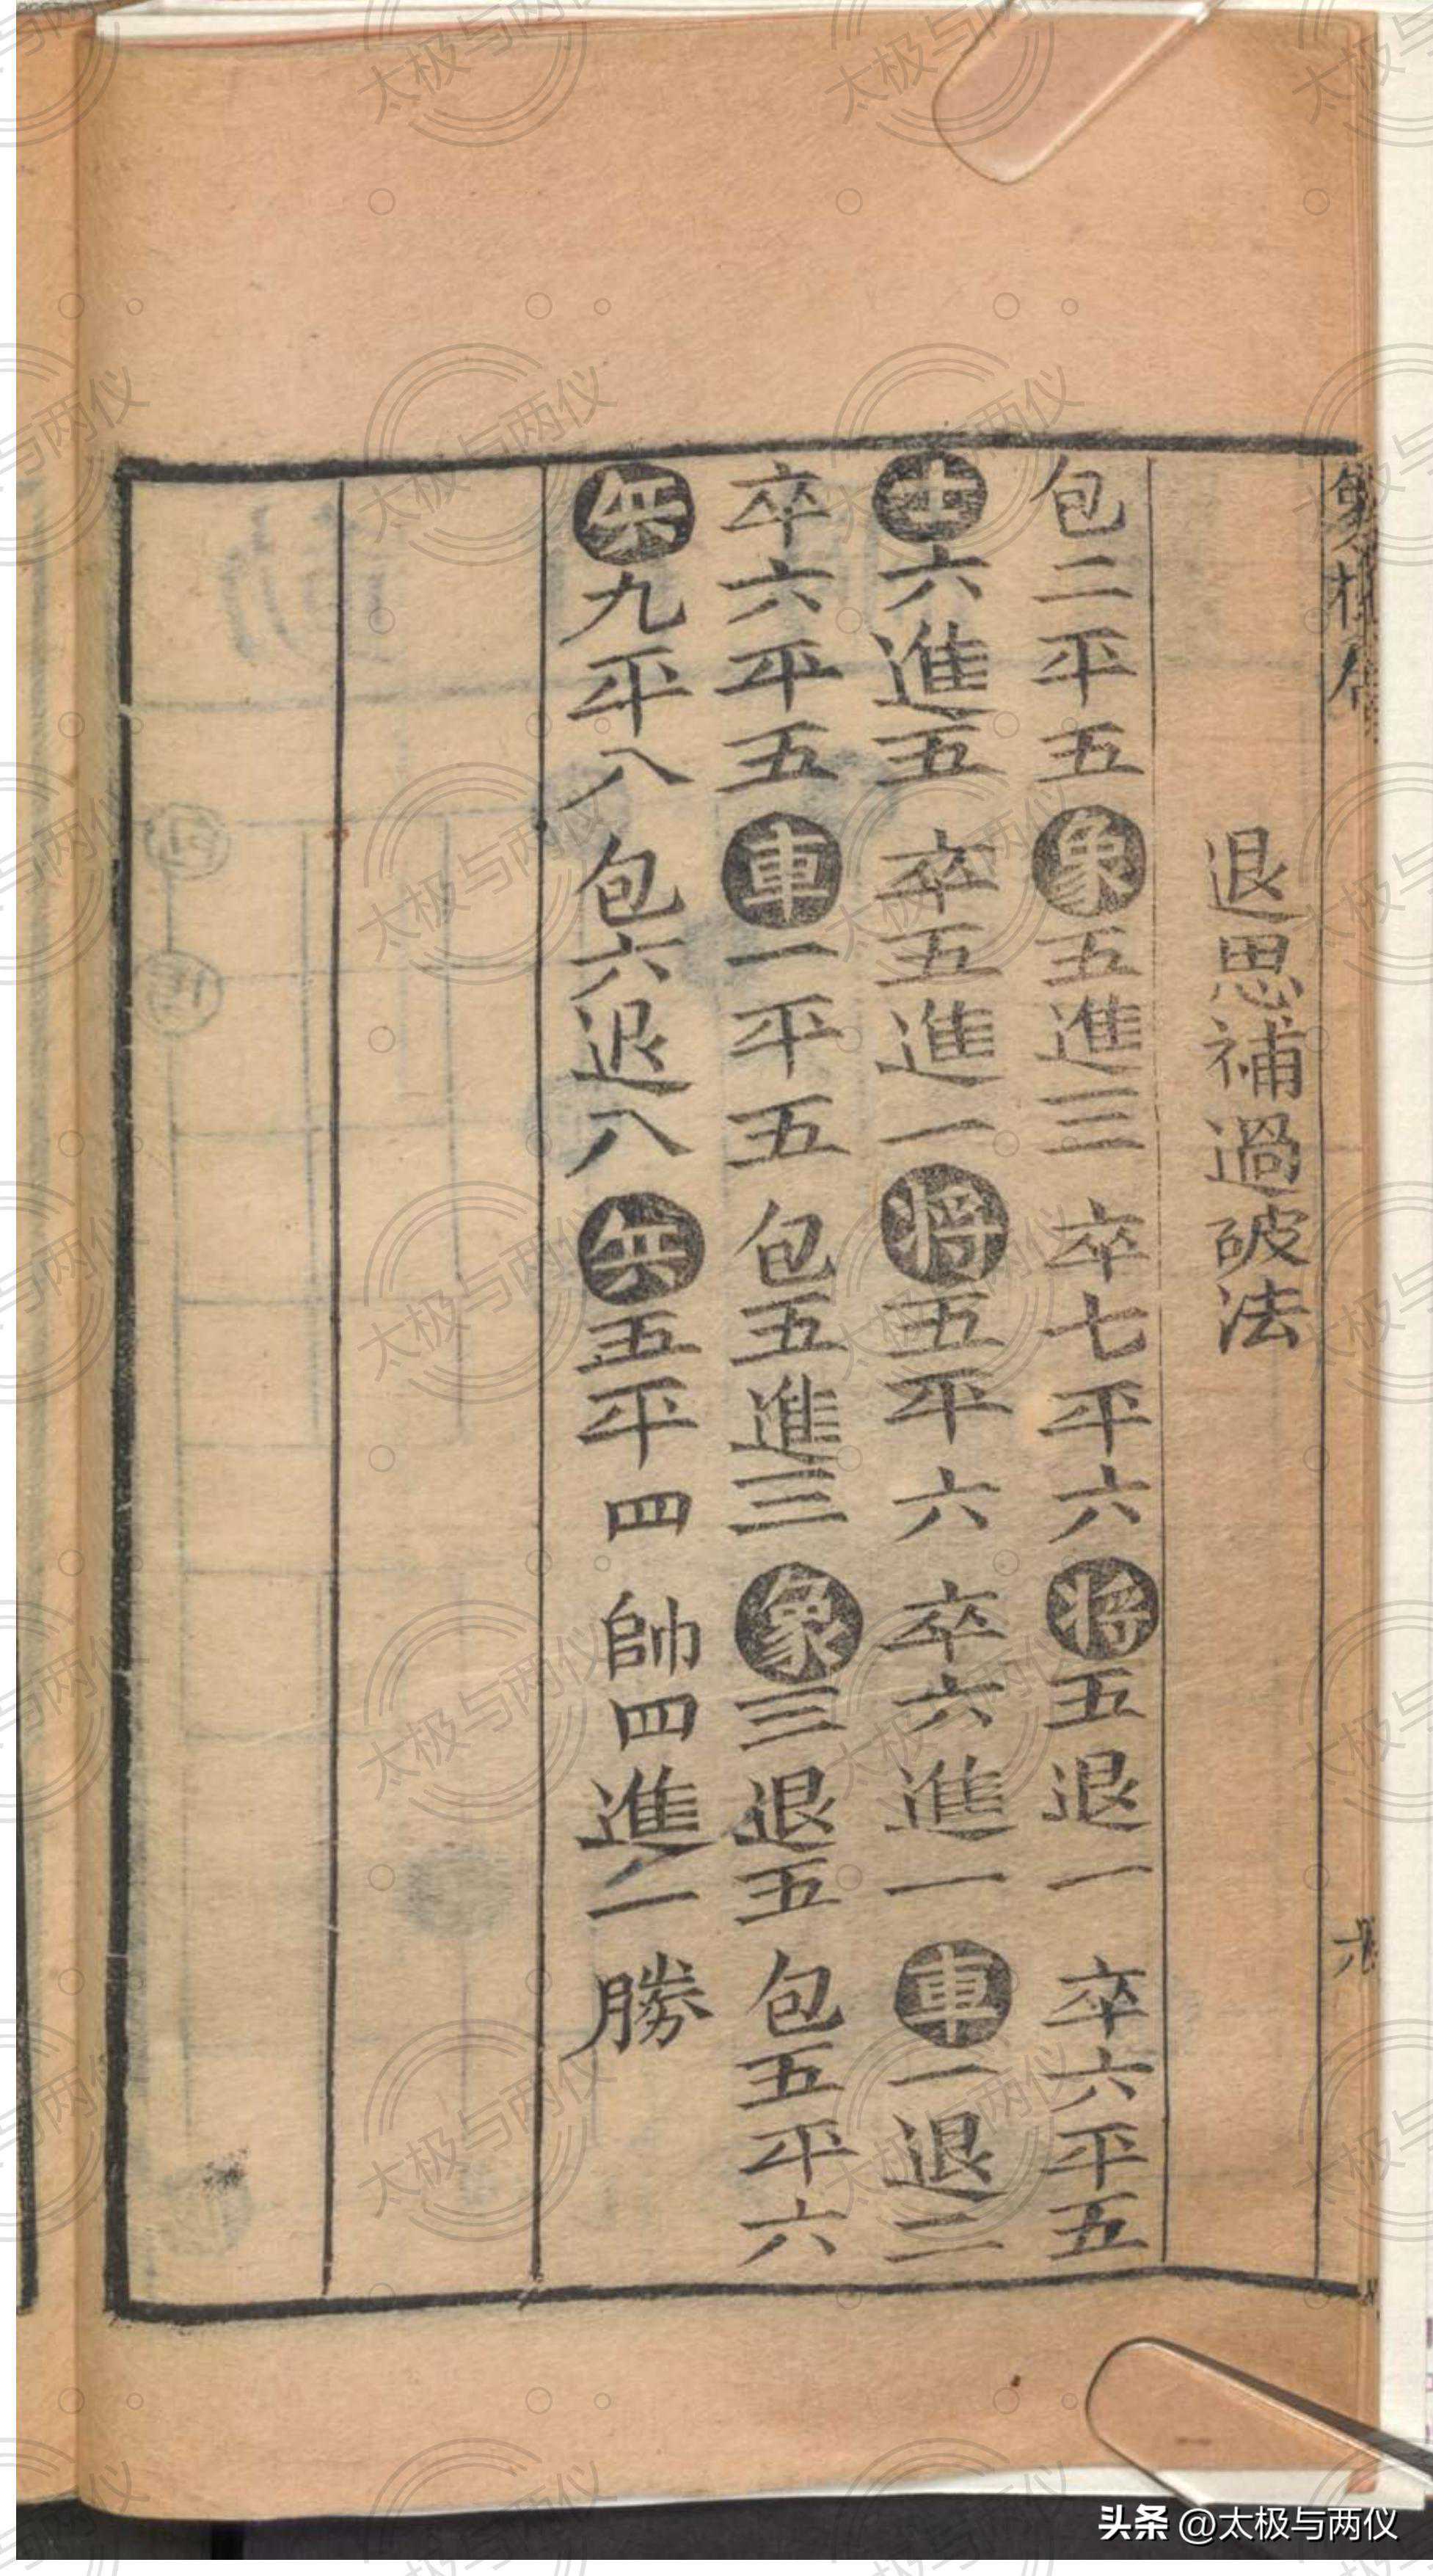 退思補過破法
包二平五 象五進三 卒七平六 将五退一 卒六平五
士六進五 卒五進一 将五平六 卒六進一 車一退二
卒六平五 車一平五 包五進三 象三退五 包五平六
兵九平八 包六退八 兵五平四 帥四進一 勝
头条 @太极与两仪
太极与两仪